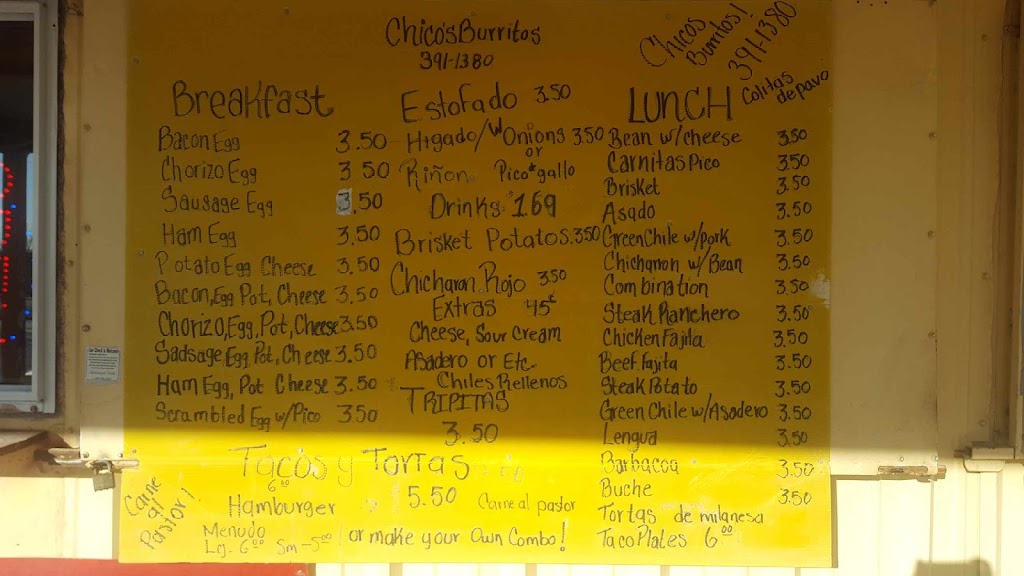 Chico's Burritos
391-1380
Chicos Burritos!
391-1380
Breakfast
Bacon Egg 3.50
Chorizo Egg 3.50
Sausage Egg 3.50
Ham Egg 3.50
Potato Egg Cheese 3.50
Bacon, Egg Pot, Cheese 3.50
Chorizo, Egg, Pot, Cheese 3.50
Sadsage, Egg, Pot, Cheese 3.50
Ham Egg, Pot Cheese 3.50
Scrambled Egg w/Pico 3.50
Estofado 3.50
Higado/w Onions 3.50
or
Riñon Pico*gallo
Drinks $1.69
Brisket Potatos 3.50
Chicharon Rojo 3.50
Extras 45¢
Cheese, Sour Cream
Asadero or Etc.
Chiles Rellenos
TRIPITAS
3.50
LUNCH
Colitas de pavo
Bean w/cheese 3.50
Carnitas Pico 3.50
Brisket 3.50
Asado 3.50
Green Chile w/pork 3.50
Chicharron w/Bean 3.50
Combination 3.50
Steak Ranchero 3.50
Chicken Fajita 3.50
Beef Fajita 3.50
Steak Potato 3.50
Green Chile w/Asadero 3.50
Lengua 3.50
Barbacoa 3.50
Buche 3.50
Tortas de milanesa
Taco Plates 6.00
Tacos y Tortas
6.00
Hamburger 5.50
Carne al pastor
Carne al Pastor!
Menudo
Lg. 6.00 Sm - 5.00
or make your Own Combo!